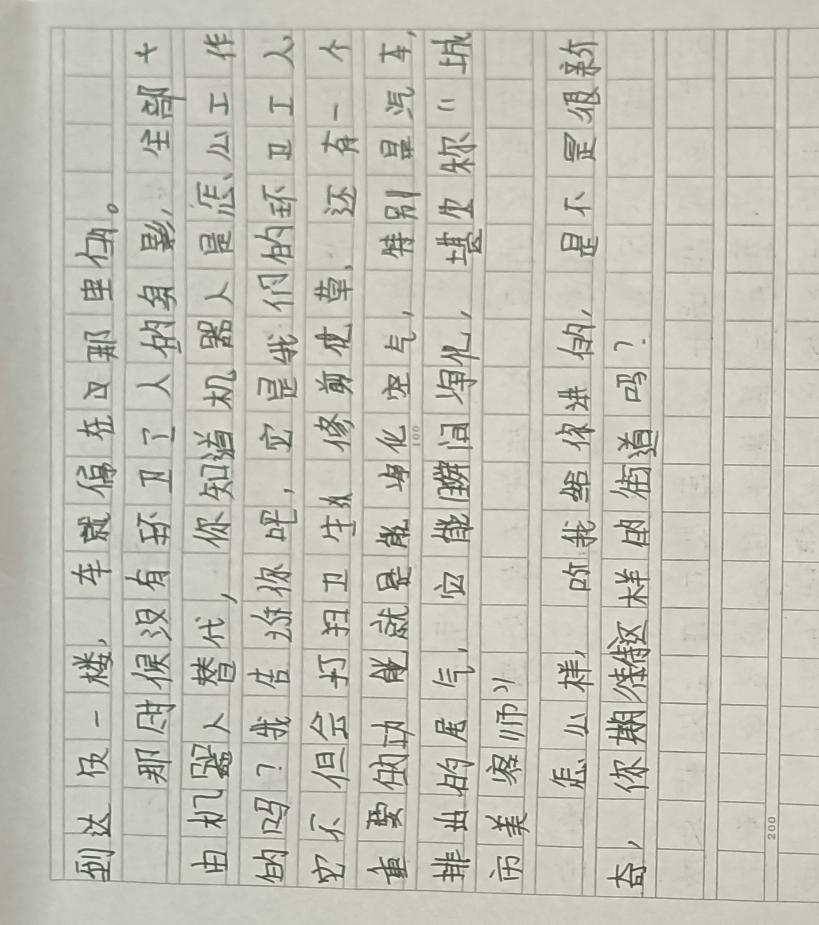 到达仅一楼，车就停在这那里似。
那时候没有环卫了人的身影，全部
由机器人替代，你知道机器人是怎么工作
的吗？我告诉你吧，它是我们的环卫工人，
它不但会打扫卫生从修剪花草，还有一个
重要的功能就是能净化空气，特别是汽车，
排出的尾气，它能瞬间净化，堪生称"城
市美容师"
怎么样，听我给你讲的，是不是很新
奇，你期待这样的街道吗？
100
200